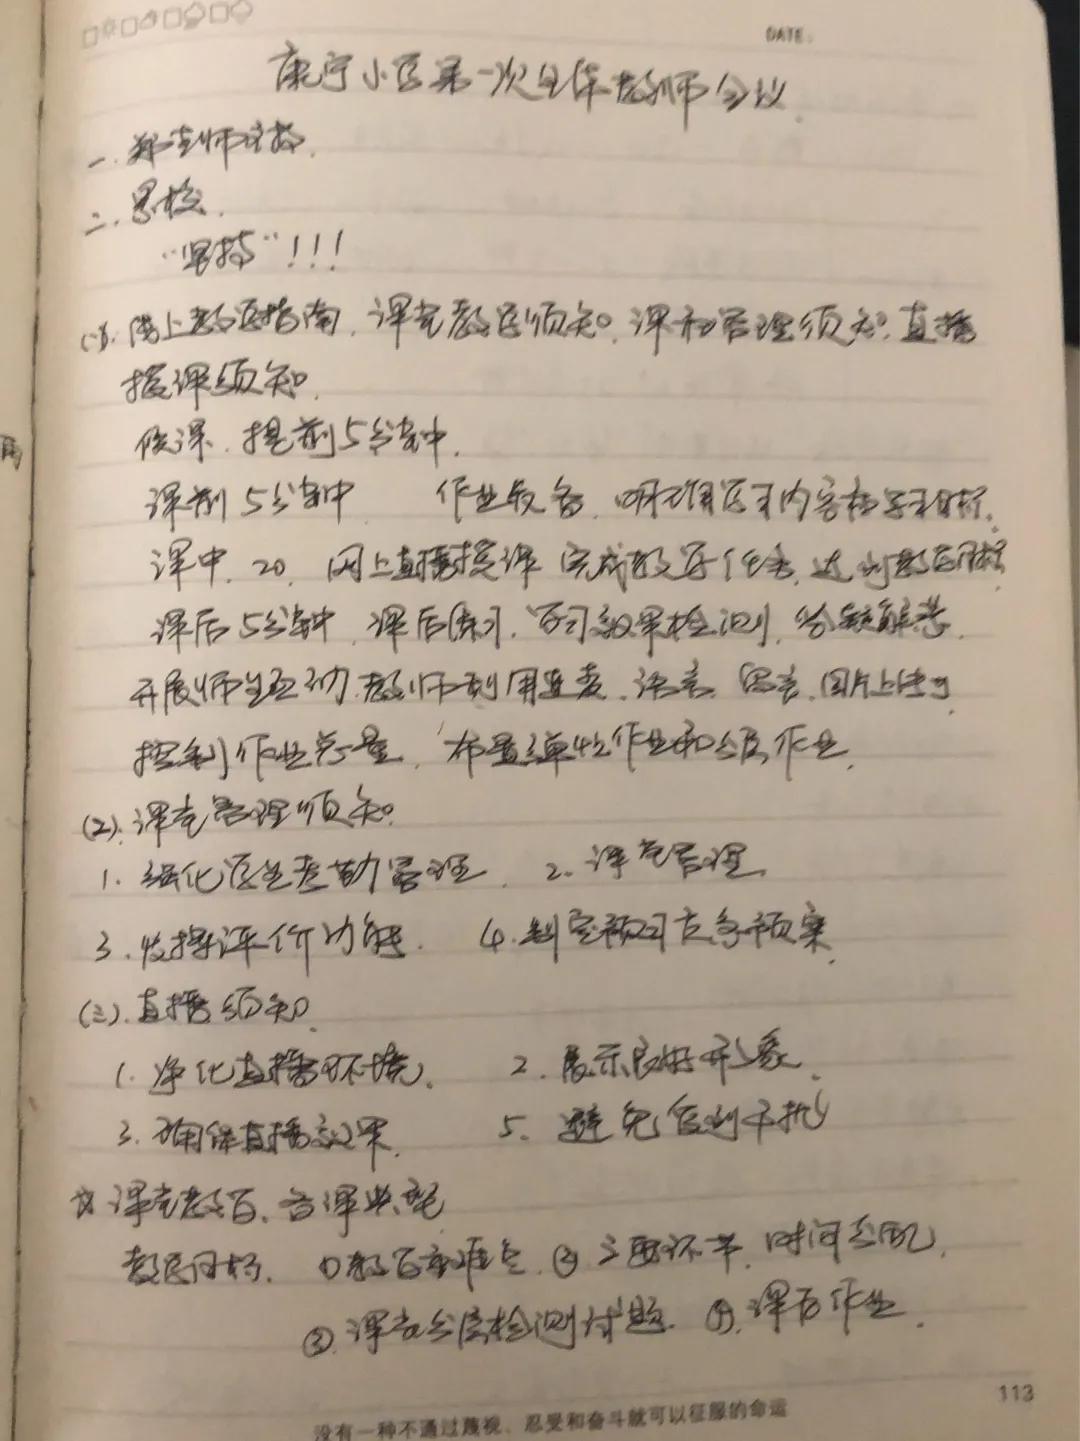 DATE:
康宁小学第一次全体教师会议
一. 郑老师主持.
二. 吴校.
"坚持"!!!
(1). 线上教学指南. 课堂教学须知. 课堂管理须知. 直播
授课须知.
候课. 提前5分钟.
课前5分钟 作业准备. 明确学习内容和学习目标.
课中. 20. 网上直播授课 完成教学任务. 达到教学目标
课后5分钟. 课后练习. 学习效果检测. 答疑解惑.
开展师生互动. 教师利用连麦. 语音. 留言. 图片上传
控制作业总量. 布置弹性作业和分层作业.
(2). 课堂管理须知.
1. 强化学生考勤管理. 2. 课堂管理.
3. 发挥评价功能. 4. 制定预习 预案.
(三). 直播须知.
1. 净化直播环境. 2. 展示良好形象.
3. 确保直播效果. 5. 避免 干扰
☆ 课堂教学. 备课
教学目标. ①教学重难点. ② 主要环节. 时间分配.
③. 课堂分层检测试题. ④. 课后作业.
没有一种不通过蔑视、忍受和奋斗就可以征服的命运
113